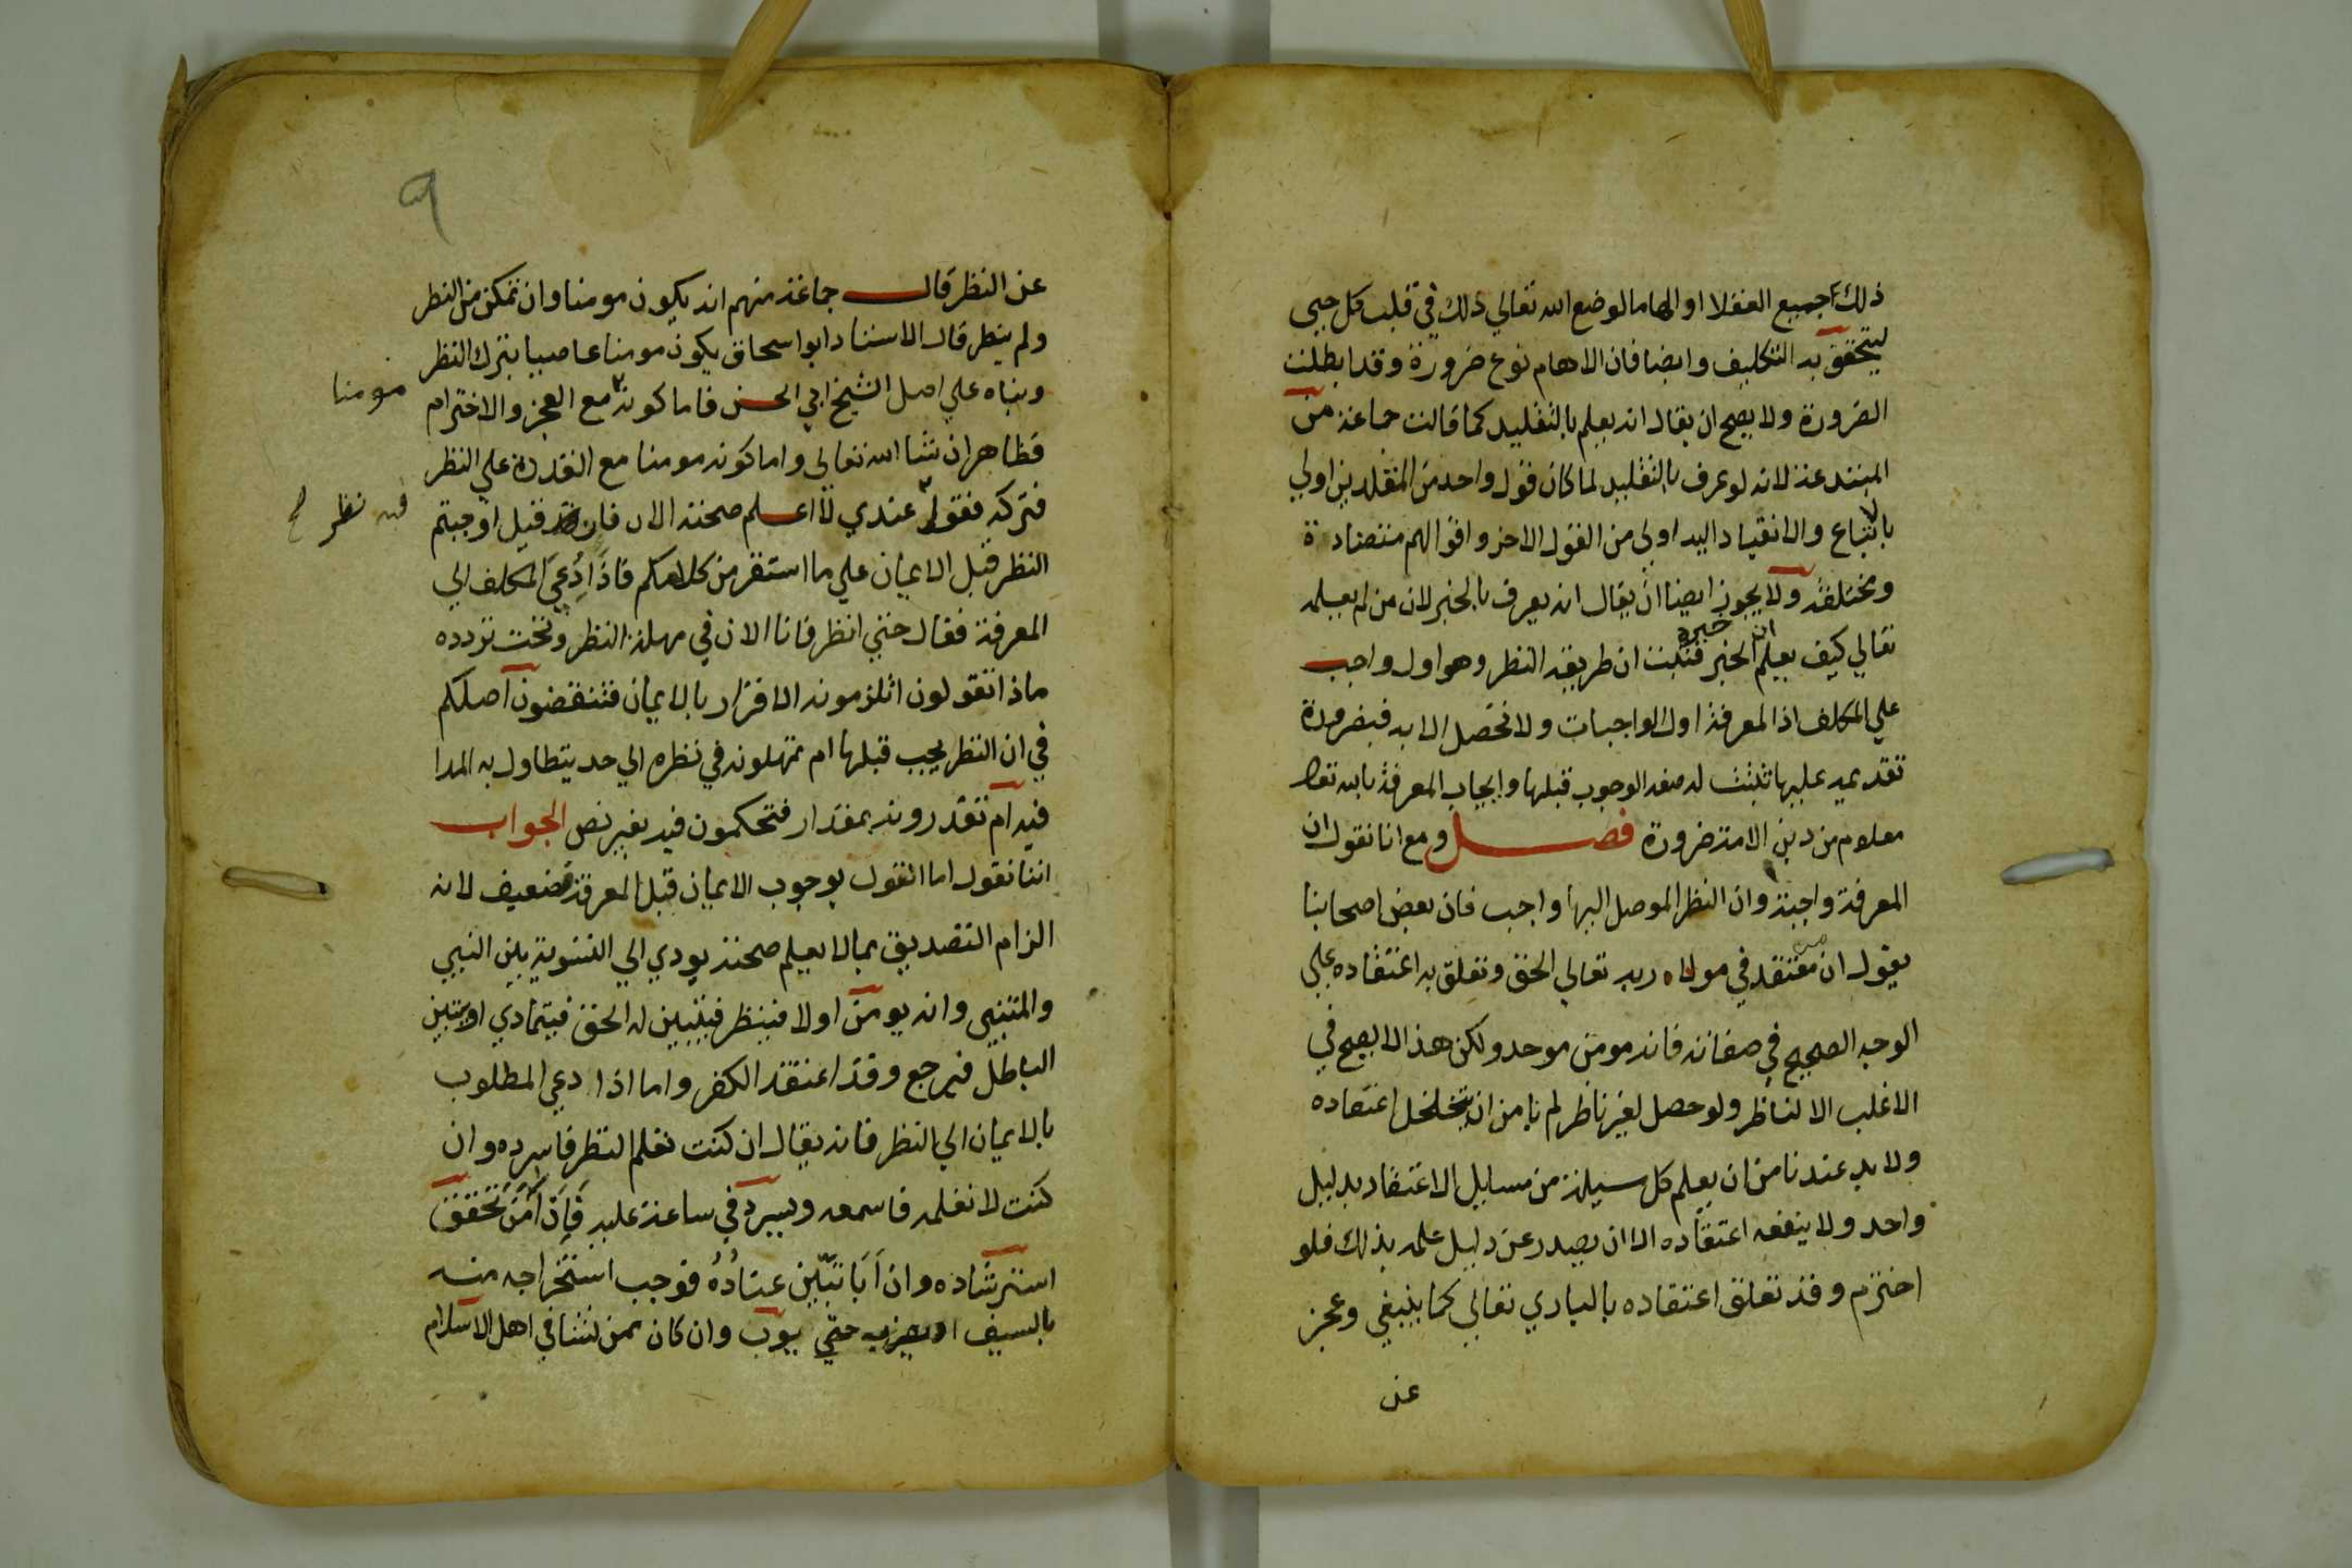 ذلك جميع العقلا او الهاما لوضع الله تعالي ذلك في قلب كل حيي
ليتحقق به التكليف وايضا فان الالهام نوع ضرورة وقد ابطلت
الضرورة ولا يصح ان يقال انه يعلم بالتقليد كما قالت جماعة من
المبتدعة لانه لو عرف بالتقليد لما كان قول واحد من المقلدين اولي
بالاتباع والانقياد اليه اولي من القول الاخر واقوالهم متضادة
ومختلفة ولا يجوز ايضا ان يقال انه يعرف بالخبر لان من لم يعلمه
تعالي كيف يعلم ان الخبر خبره فثبت ان طريقه النظر وهو اول واجب
علي المكلف اذ المعرفة اول الواجبات ولا تحصل الا به فبضرورة
تقديمه عليها تثبت له صفة الوجوب قبلها وايجاب المعرفة بالله تعالى
معلوم من دين الامة ضرورة فصل ومع انا نقول ان
المعرفة واجبة وان النظر الموصل اليها واجب فان بعض اصحابنا
يقول ان من معتقد في مولاه ربه تعالي الحق وتعلق به اعتقاده علي
الوجه الصحيح في صفاته فانه مومن موحد ولكن هذا لا يصح في
الاغلب الا لناظر ولو حصل لغير ناظر لم نامن ان يتخلخل اعتقاده
ولا بد عندنا من ان يعلم كل سيلة من مسايل الاعتقاد بدليل
واحد ولا ينفعه اعتقاده الا ان يصدر عن دليل علمه بذلك فلو
اخترم وقد تعلق اعتقاده بالباري تعالي كما ينبغي وعجز
عن
٩
عن النظر قال جماعة منهم انه يكون مومنا وان تمكن من النظر
ولم ينظر قال الاستاد ابو اسحاق يكون مومنا عاصيا بترك النظر
وبناه علي اصل الشيخ ابي الحسن فاما كونه مع العجز والاخترام
مومنا
فظاهر ان شا الله تعالي واما كونه مومنا مع القدرة علي النظر
فتركه فقول عندي لا اعلم صحته الان فان قيل اوجبتم
فيه نظر
النظر قبل الايمان علي ما استقر من كلامكم فاذا دعي المكلف الي
المعرفة فقال حتي انظر فانا الان في مهلة النظر وتحت تردده
ماذا تقولون اتلزمونه الاقرار بالايمان فتنقضون اصلكم
في ان النظر يجب قبلها ام تمهلونه في نظره الي حد يتطاول به المدا
فيه ام تقدرونه بمقدار فتحكمون فيه بغير نص الجواب
اننا نقول اما القول بوجوب الايمان قبل المعرفة فضعيف لانه
الزام التصديق بما لا يعلم صحته يودي الي التسوية بين النبي
والمتنبي وانه يومن اولا فينظر فيتبين له الحق فيتمادي او يتبين
الباطل فيرجع وقد اعتقد الكفر واما اذا دعي المطلوب
بالايمان الي النظر فانه يقال ان كنت تعلم النظر فاسرده وان
كنت لا تعلمه فاسمعه ويسرد في ساعة عليه فان امن تحقق
استرشاده وان ابا تبين عناده فوجب استخراجه منه
بالسيف او يضربه حتي يوب وان كان ممن نشا في اهل الاسلام